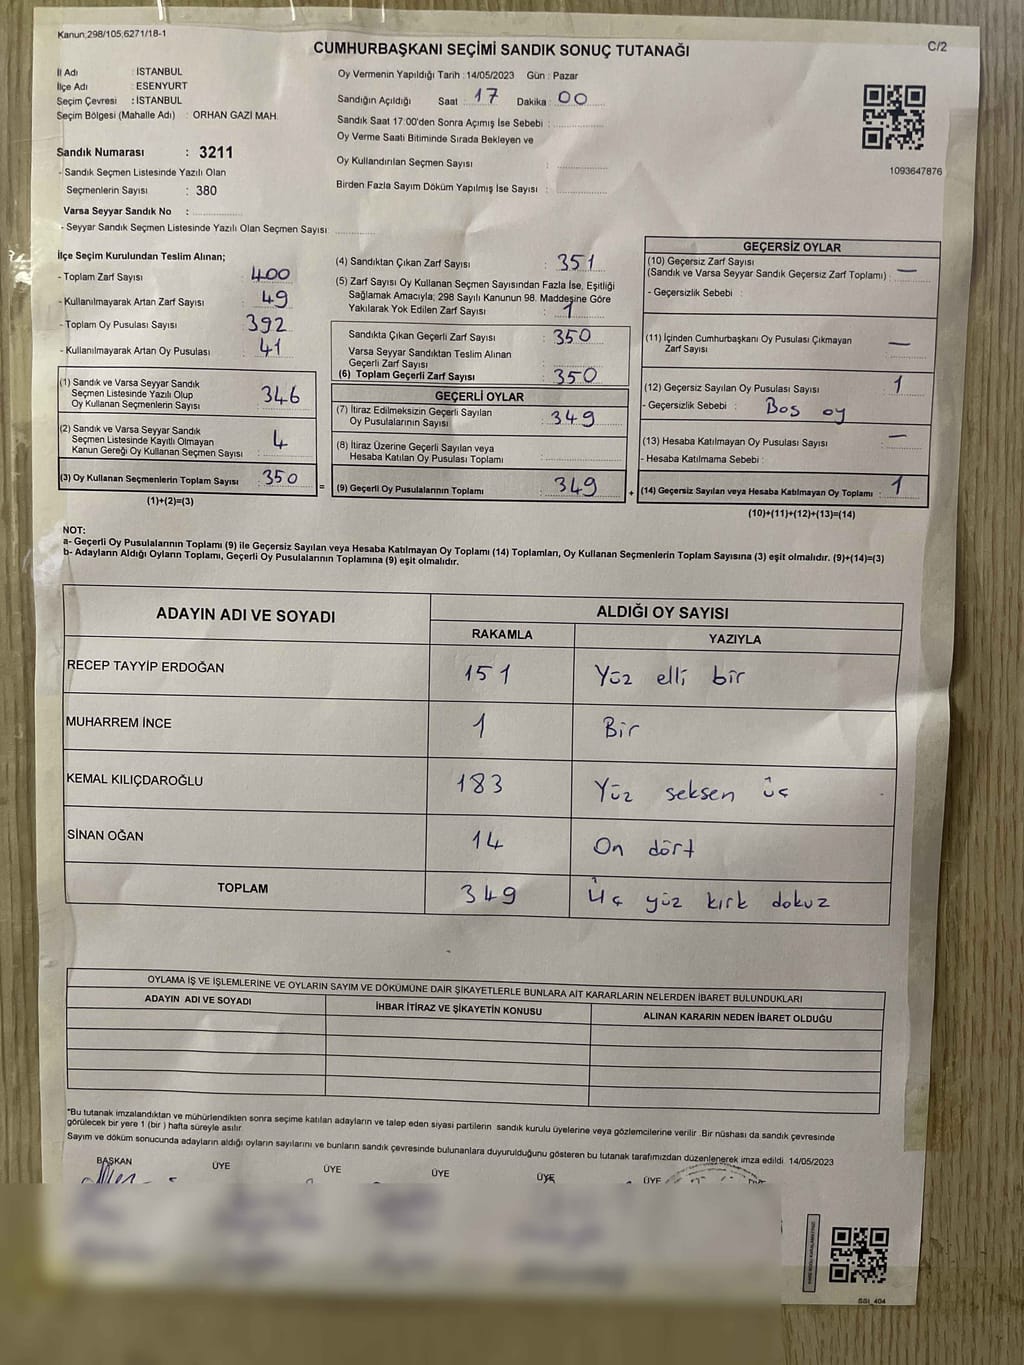 Kanun;298/105;6271/18-1
CUMHURBAŞKANI SEÇİMİ SANDIK SONUÇ TUTANAĞI
C/2
İl Adı : İSTANBUL
İlçe Adı : ESENYURT
Seçim Çevresi : İSTANBUL
Seçim Bölgesi (Mahalle Adı) : ORHAN GAZİ MAH.
Sandık Numarası : 3211
- Sandık Seçmen Listesinde Yazılı Olan
Seçmenlerin Sayısı : 380
Varsa Seyyar Sandık No :
- Seyyar Sandık Seçmen Listesinde Yazılı Olan Seçmen Sayısı :
Oy Vermenin Yapıldığı Tarih : 14/05/2023 Gün : Pazar
Sandığın Açıldığı Saat : 17 Dakika : 00
Sandık Saat 17:00'den Sonra Açımış İse Sebebi :
Oy Verme Saati Bitiminde Sırada Bekleyen ve
Oy Kullandırılan Seçmen Sayısı :
Birden Fazla Sayım Döküm Yapılmış İse Sayısı :
1093647876
İlçe Seçim Kurulundan Teslim Alınan;
- Toplam Zarf Sayısı : 400
- Kullanılmayarak Artan Zarf Sayısı : 49
- Toplam Oy Pusulası Sayısı : 392
- Kullanılmayarak Artan Oy Pusulası : 41
(1) Sandık ve Varsa Seyyar Sandık
Seçmen Listesinde Yazılı Olup
Oy Kullanan Seçmenlerin Sayısı : 346
(2) Sandık ve Varsa Seyyar Sandık
Seçmen Listesinde Kayıtlı Olmayan
Kanun Gereği Oy Kullanan Seçmen Sayısı : 4
(3) Oy Kullanan Seçmenlerin Toplam Sayısı : 350
(1)+(2)=(3)
(4) Sandıktan Çıkan Zarf Sayısı : 351
(5) Zarf Sayısı Oy Kullanan Seçmen Sayısından Fazla İse, Eşitliği
Sağlamak Amacıyla; 298 Sayılı Kanunun 98. Maddesine Göre
Yakılarak Yok Edilen Zarf Sayısı : 1
Sandıkta Çıkan Geçerli Zarf Sayısı : 350
Varsa Seyyar Sandıktan Teslim Alınan
Geçerli Zarf Sayısı :
(6) Toplam Geçerli Zarf Sayısı : 350
GEÇERLİ OYLAR
(7) İtiraz Edilmeksizin Geçerli Sayılan
Oy Pusulalarının Sayısı : 349
(8) İtiraz Üzerine Geçerli Sayılan veya
Hesaba Katılan Oy Pusulası Toplamı :
= (9) Geçerli Oy Pusulalarının Toplamı : 349
GEÇERSİZ OYLAR
(10) Geçersiz Zarf Sayısı
(Sandık ve Varsa Seyyar Sandık Geçersiz Zarf Toplamı) : —
- Geçersizlik Sebebi :
(11) İçinden Cumhurbaşkanı Oy Pusulası Çıkmayan
Zarf Sayısı : —
(12) Geçersiz Sayılan Oy Pusulası Sayısı : 1
- Geçersizlik Sebebi : Boş oy
(13) Hesaba Katılmayan Oy Pusulası Sayısı : —
- Hesaba Katılmama Sebebi :
+ (14) Geçersiz Sayılan veya Hesaba Katılmayan Oy Toplamı : 1
(10)+(11)+(12)+(13)=(14)
NOT:
a- Geçerli Oy Pusulalarının Toplamı (9) ile Geçersiz Sayılan veya Hesaba Katılmayan Oy Toplamı (14) Toplamları, Oy Kullanan Seçmenlerin Toplam Sayısına (3) eşit olmalıdır. (9)+(14)=(3)
b- Adayların Aldığı Oyların Toplamı, Geçerli Oy Pusulalarının Toplamına (9) eşit olmalıdır.
ADAYIN ADI VE SOYADI ALDIĞI OY SAYISI
RAKAMLA YAZIYLA
RECEP TAYYİP ERDOĞAN 151 Yüz elli bir
MUHARREM İNCE 1 Bir
KEMAL KILIÇDAROĞLU 183 Yüz seksen üç
SİNAN OĞAN 14 On dört
TOPLAM 349 Üç yüz kırk dokuz
OYLAMA İŞ VE İŞLEMLERİNE VE OYLARIN SAYIM VE DÖKÜMÜNE DAİR ŞİKAYETLERLE BUNLARA AİT KARARLARIN NELERDEN İBARET BULUNDUKLARI
ADAYIN ADI VE SOYADI İHBAR İTİRAZ VE ŞİKAYETİN KONUSU ALINAN KARARIN NEDEN İBARET OLDUĞU
"Bu tutanak imzalandıktan ve mühürlendikten sonra seçime katılan adayların ve talep eden siyasi partilerin sandık kurulu üyelerine veya gözlemcilerine verilir .Bir nüshası da sandık çevresinde
görülecek bir yere 1 (bir ) hafta süreyle asılır.
Sayım ve döküm sonucunda adayların aldığı oyların sayılarını ve bunların sandık çevresinde bulunanlara duyurulduğunu gösteren bu tutanak tarafımızdan düzenlenerek imza edildi. 14/05/2023
BAŞKAN ÜYE ÜYE ÜYE ÜYE ÜYE
SSI_404